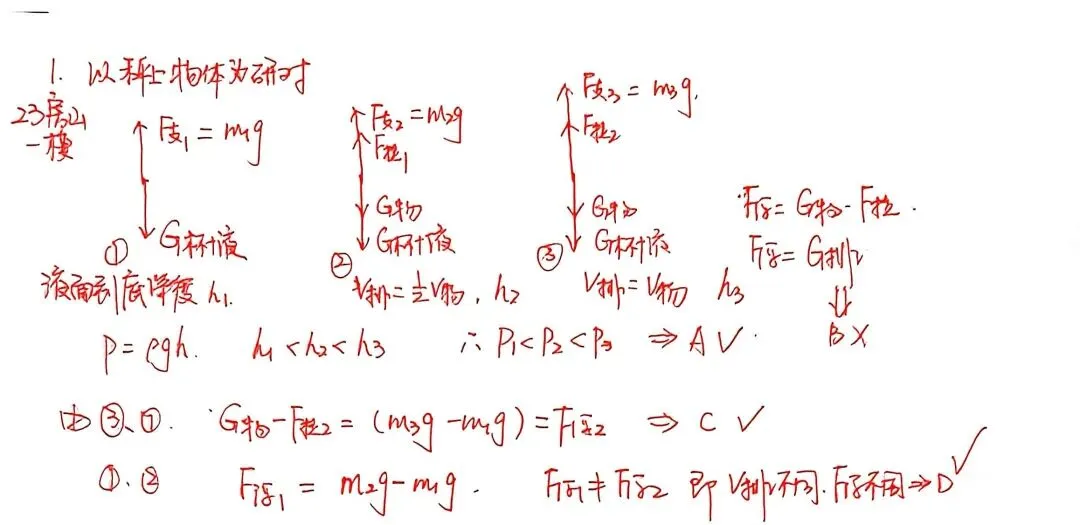 1. 以秤上物体为研对
23房山
一模
F支1 = m1g
G杯+液
①
液面到底深度 h1.
F支2 = m2g
F拉1
G物
G杯+液
②
V排 = 1/2 V物, h2
F支3 = m3g.
F拉2
G物
G杯+液
③
V排 = V物 h3
F浮 = G物 - F拉.
F浮 = G排
⇓
B X
P = ρgh. h1 < h2 < h3 ∴ P1 < P2 < P3 ⇒ A ✓.
由③、①. G物 - F拉2 = (m3g - m1g) = F浮2 ⇒ C ✓
①.② F浮1 = m2g - m1g. F浮1 ≠ F浮2 即 V排不同. F浮不同 ⇒ D ✓